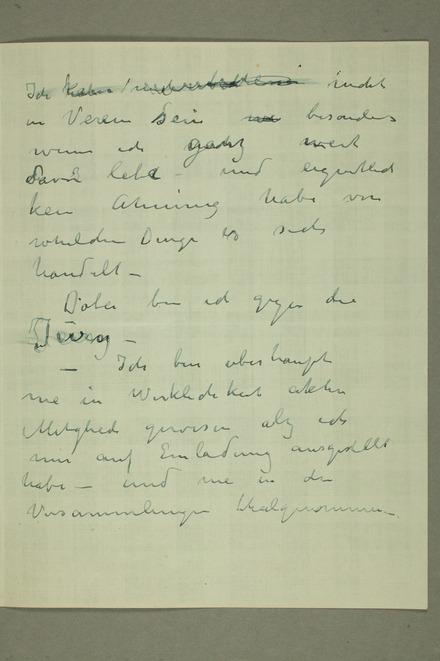 Ich nicht
in Verein sein besonders
wenn ich ganz weit
davon lebe – und eigentlich
kein Ahnung habe von
welchen Dinge es sich
handelt –
Daher bin ich gegen die
Jury –
– Ich bin überhaupt
nie in Wirklichkeit aktiv
Mitglied gewesen als ich
mir auf Einladung ausgestellt
habe – und nie in den
Versammlungen